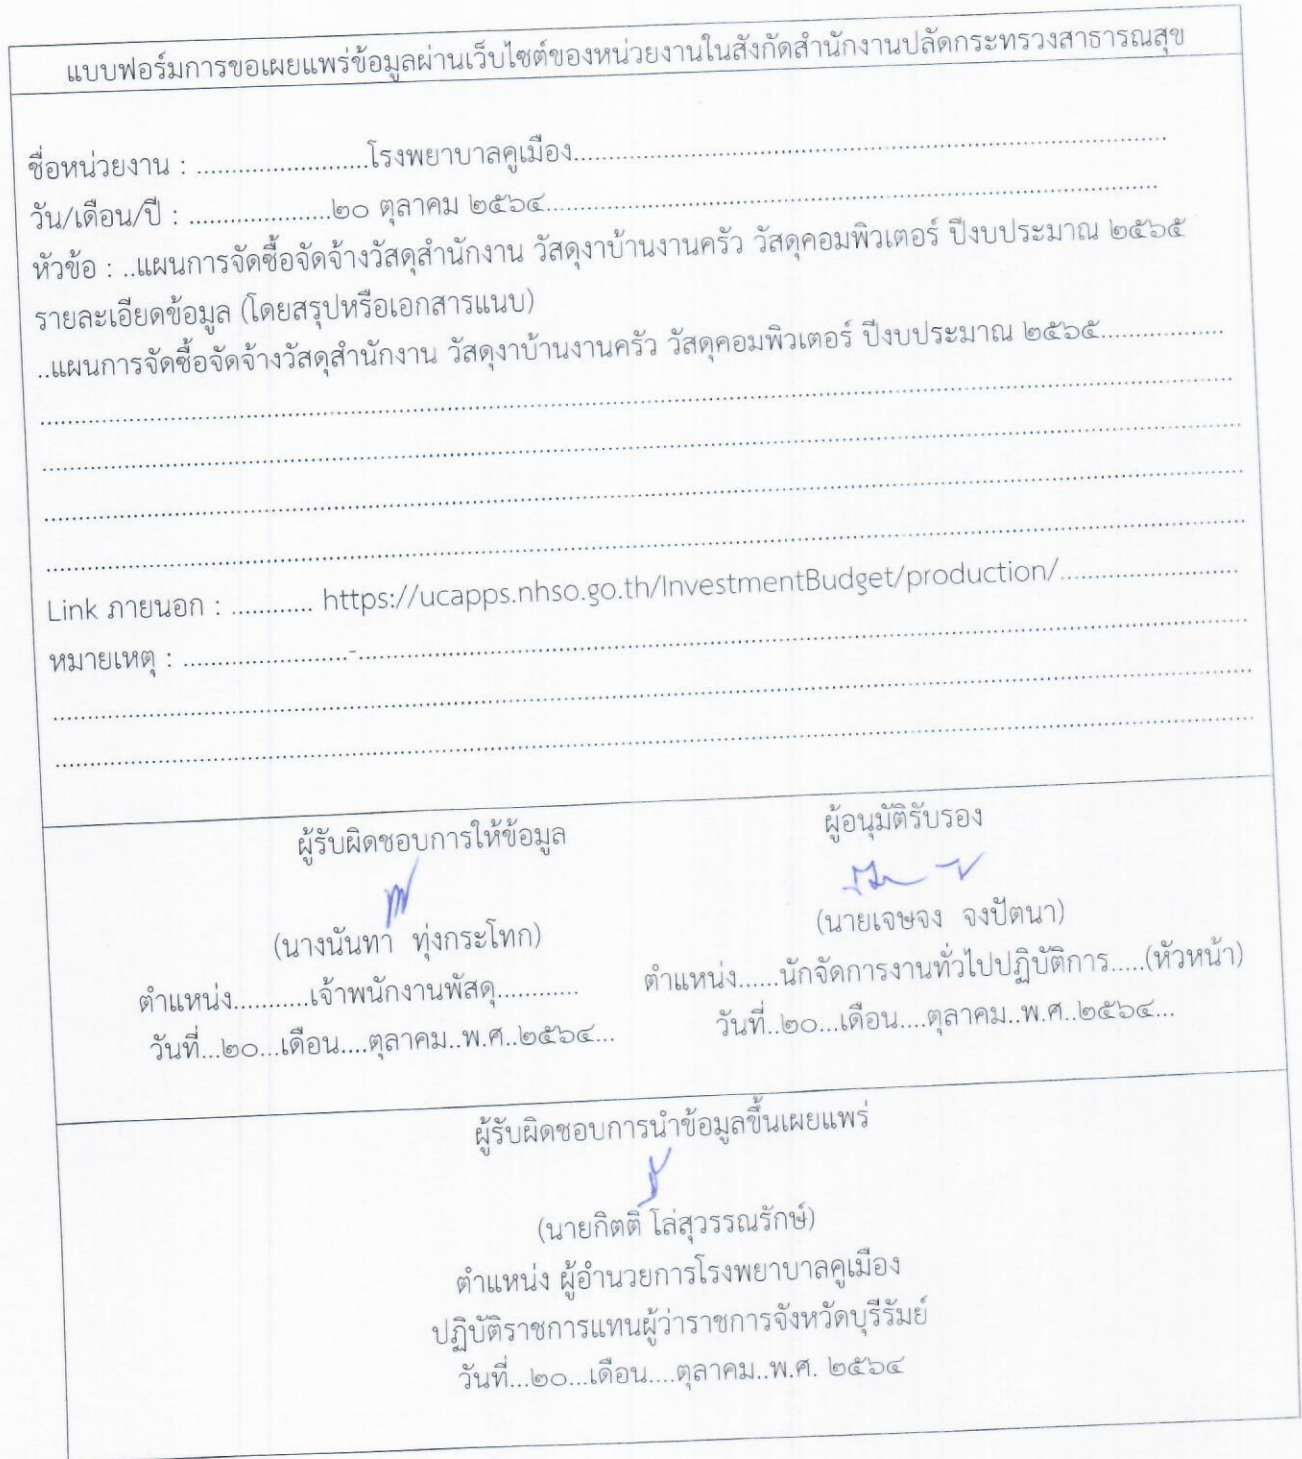 แบบฟอร์มการขอเผยแพร่ข้อมูลผ่านเว็บไซต์ของหน่วยงานในสังกัดสำนักงานปลัดกระทรวงสาธารณสุข
ชื่อหน่วยงาน : .........................โรงพยาบาลคูเมือง.......................................................................................
วัน/เดือน/ปี : .....................๒๐ ตุลาคม ๒๕๖๔..........................................................................................
หัวข้อ : ..แผนการจัดซื้อจัดจ้างวัสดุสำนักงาน วัสดุงาบ้านงานครัว วัสดุคอมพิวเตอร์ ปีงบประมาณ ๒๕๖๕
รายละเอียดข้อมูล (โดยสรุปหรือเอกสารแนบ)
..แผนการจัดซื้อจัดจ้างวัสดุสำนักงาน วัสดุงาบ้านงานครัว วัสดุคอมพิวเตอร์ ปีงบประมาณ ๒๕๖๕..................
Link ภายนอก : ............ https://ucapps.nhso.go.th/InvestmentBudget/production/..........................
หมายเหตุ : ........................-.................................................................................................................................
ผู้รับผิดชอบการให้ข้อมูล
(นางนันทา ทุ่งกระโทก)
ตำแหน่ง...........เจ้าพนักงานพัสดุ............
วันที่...๒๐...เดือน....ตุลาคม..พ.ศ..๒๕๖๔...
ผู้อนุมัติรับรอง
(นายเจษจง จงปัตนา)
ตำแหน่ง......นักจัดการงานทั่วไปปฏิบัติการ.....(หัวหน้า)
วันที่..๒๐...เดือน....ตุลาคม..พ.ศ..๒๕๖๔...
ผู้รับผิดชอบการนำข้อมูลขึ้นเผยแพร่
(นายกิตติ โล่สุวรรณรักษ์)
ตำแหน่ง ผู้อำนวยการโรงพยาบาลคูเมือง
ปฏิบัติราชการแทนผู้ว่าราชการจังหวัดบุรีรัมย์
วันที่...๒๐...เดือน....ตุลาคม..พ.ศ. ๒๕๖๔